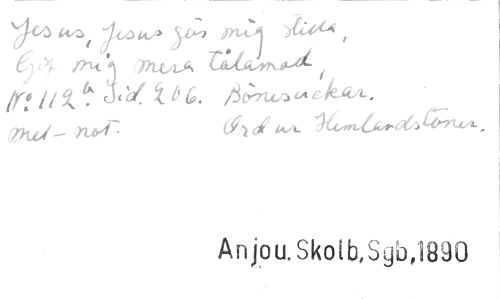 Jesus, Jesus gör mig stilla,
Gif mig mera tålamod,
No. 112 a. Sid. 206. Bönesuckar.
met-not. Ord ur Hemlandstoner.
Anjou. Skolb, Sgb, 1890